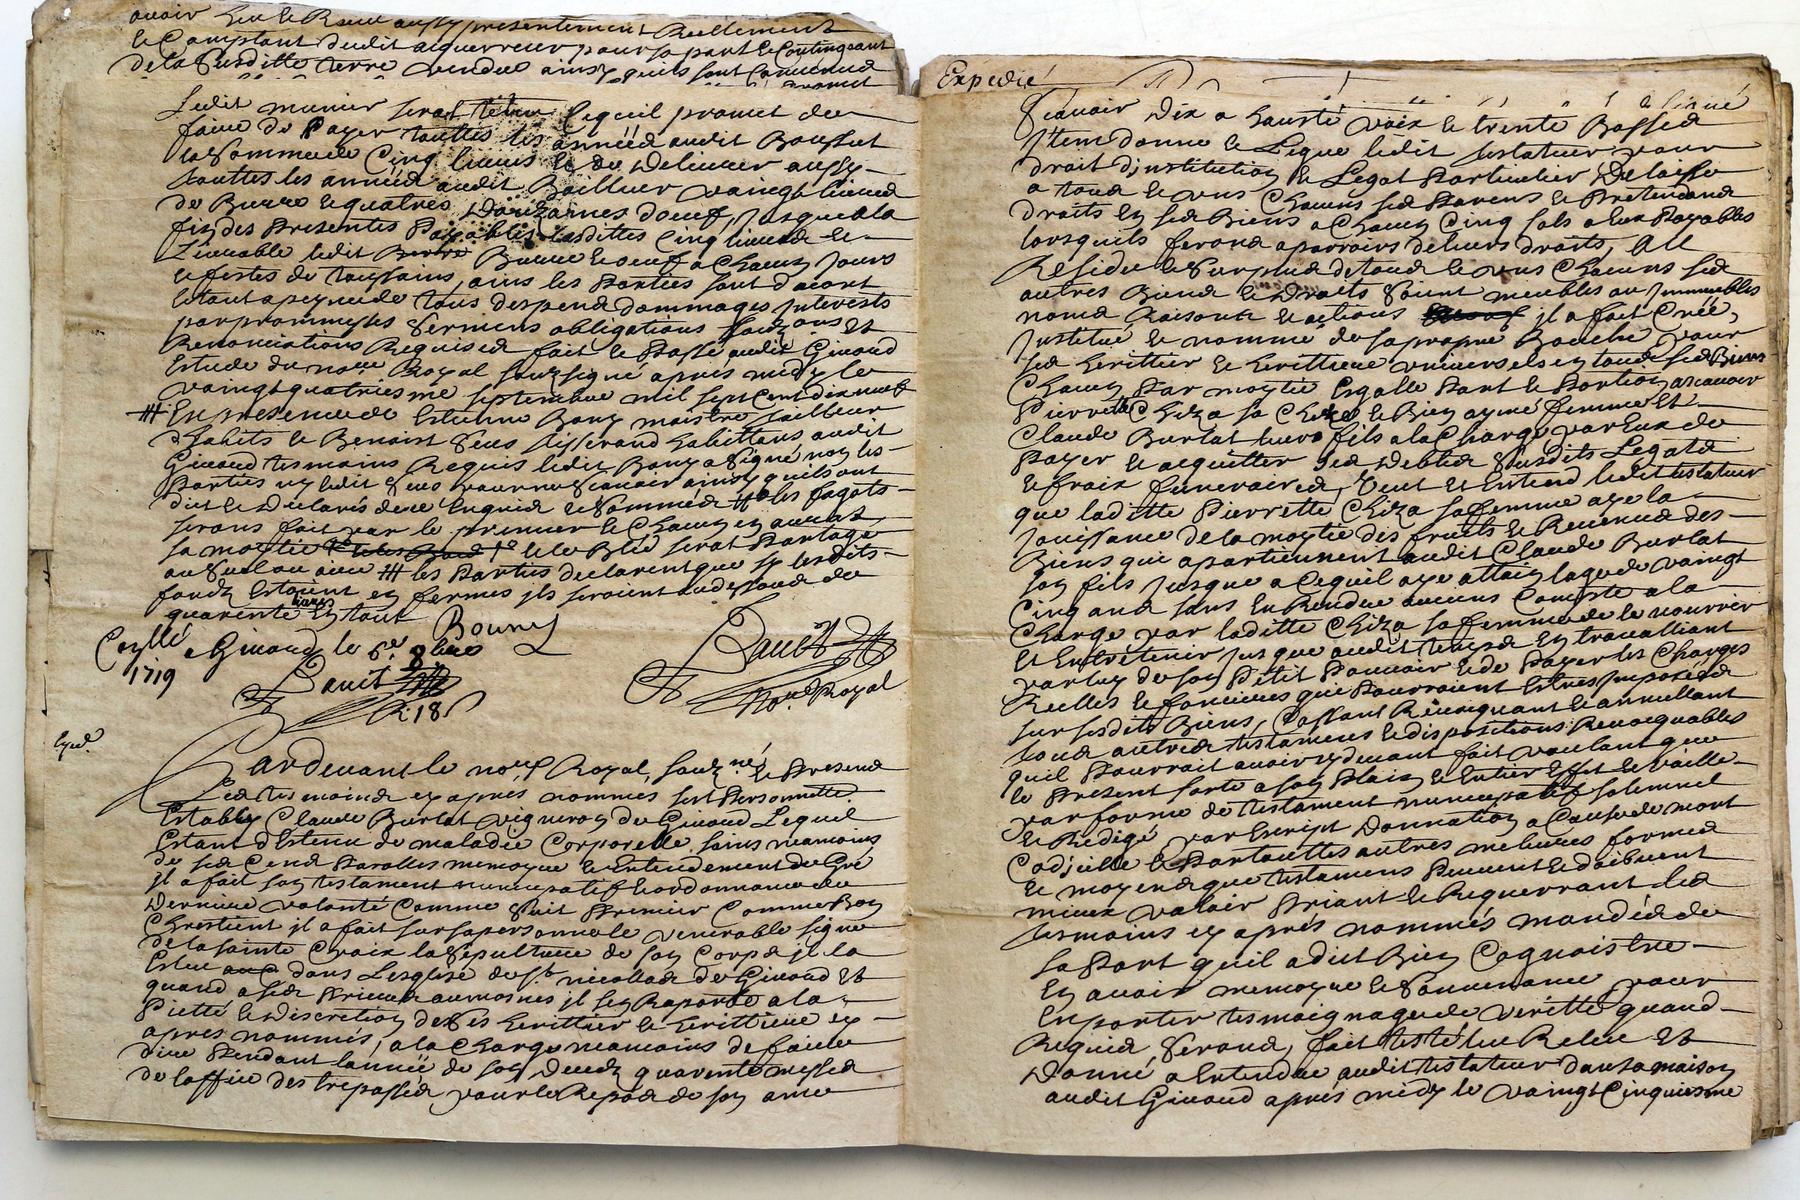 avoir heu et Receu aussy presentement Reellement
et Comptant dudit acquerreur pour sa part et Contingeant
de la Susditte terre vendue ainsy quils sont Convenus
Ledit munier serat tenu lequel promet de
faire de Payer touttes les années audit Bousset
la Somme de Cinq livres et de delivrer aussy
touttes les années audit Bailleur vaingt livres
de Burre et quatres Douzaines doeuf, jusque a la
fin des presentes Payables lesdittes Cinq livres et
Burre et oeuf a Chacun jours
et festes de toussains, ains les Parties sont dacort
Estant a peyne de tous despend dommages interests
par prommesses sermens obligations
Renonciations Requises fait et Passé audit Givord
Estude du nore Royal soussigné apres midy le
vaingt quatriesme septembre mil sept Cent dix neuf
En presence de Estienne Bony maistre tailleur
dhabits et Benoist tisserand habittans audit
Givord tesmoins Requis ledit Bony a Signé non les
Parties ny ledit pour ne Scavoir ainsy quils ont
dict et declarés de ce Enquis et Sommés les fagots
serons fait par le premier et Chacun en aurat
sa moytié et le Blé serat Partagé
les Parties declarent que sy lesdits
fonds Estoient en fermes ils seroient audessoud de
quarente livres En tout
Bouny
Conllé a Givord le 6e 8bre
1719
R. 18 s
Not. Royal
Expié
Pardevant le nore Royal, souzné, et Presend
les tesmoins cy apres nommés sest Personnelle
Estably Claude Burlat vigneron de Givord Lequel
Estant d'Estenu de maladie Corporelle sains neamoins
de ses Cens Parolles memoyre et Entendement de Gré
il a fait son testament nuncupatif et ordonnance de
derniere volonté Comme Suit Premier Comme Bon
Chrestient il a fait sur sa personne le venerable signe
de la sainte Croix la Sepulture de son Corps il la
Eslue dans Lesglise de St. nicollas de Givord Et
quand a ses Prieres aumosnes il sen Raporte a la
Pietté et discretion de Ses herittier et herittiere cy
apres nommés, a la Charge neamoins de faire
dire Pendant lannée de son Decedz quarente messes
de loffice des trepassés pour le Repos de son ame
Expedié
Scavoir Dix a haute voix et trente Basses
Item donne et Legue ledit testateur pour
droit dinstitution et Legat Particulier Delaisse
a tous et uns Chacuns ses Parens et Pretendans
droits en ses Biens a Chacun Cinq sols a Eux Payables
lorsquils feront aparroirs de leurs droits, Au
Residu et Surplus de tous et uns Chacuns ses
autres Biens et Droits Soient meubles ou Immeubles
noms Raisons et actions il a fait Créé,
Institué et nommé de sa propre Bouche pour
ses herittier et herittiere universels en tous ses Biens
Chacun Par moytié Esgalle Part et Portion ascavoir
Pierrette Chiza sa Chere et Bien aymé femme Et
Claude Burlat leurs fils a la Charge par Eux de
Payer et acquitter Ses debtes Susdits Legats
et fraix funeraires, Veut et Entend ledit testateur
que laditte Pierrette Chiza sa femme aye la
jouissance de la moytié des fruits et Revenus des
Biens qui apartiennent audit Claude Burlat
son fils jusque a Cequil aye attain lage de vaingt
Cinq ans sans En Rendre aucuns Compte a la
Charge par laditte Chiza sa femme de le nourrir
Et Entretenir jusque audit temps En travalliant
par luy de son Petit Pouvoir et de Payer les Charges
Reelles et foncieres qui Pourroient Estres Imposées
sur lesdits Biens, Cassant Revoquant et annullant
tous autres testamens et dispositions Revocquables
quil Pourroit avoir cydevant fait voulant que
le Present sorte a son Plain et Entier Effet et vaille
par forme de testament nuncupatif solemnel
et Redigé par Escript Donnation a Cause de mort
Codicille et Partouttes autres melieures formes
et moyens que testamens Peuvent et doibvent
mieux valoir Priant et Requerrant les
tesmoins cy aprés nommés mandés de
sa Part quil a dict Bien Cognoistre
En avoir memoyre et Souvenance pour
En porter tesmoignage de veritté quand
Requis, Seront, fait testé lu Relu Et
Donné, a Entendre audit testateur dans sa maison
audit Givord après midy le vaingt Cinquiesme